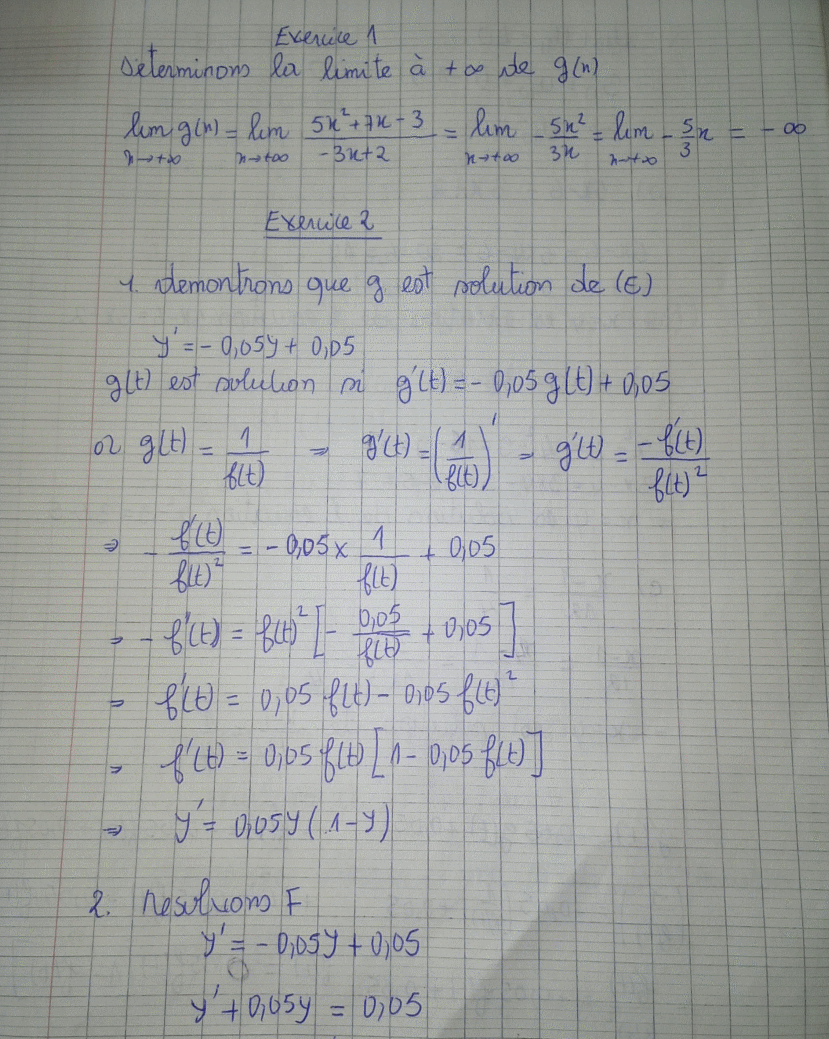 Exercice 1
Determinons la limite à +∞ de g(x)
lim g(x) = lim (5x²+7x-3)/(-3x+2) = lim - 5x²/3x = lim - 5/3 x = - ∞
x→+∞ x→+∞ x→+∞ x→+∞
Exercice 2
1. demontrons que g est solution de (E)
y' = - 0,05y + 0,05
g(t) est solution si g'(t) = - 0,05 g(t) + 0,05
or g(t) = 1/f(t) ⇒ g'(t) = (1/f(t))' ⇒ g'(t) = -f'(t)/f(t)²
⇒ - f'(t)/f(t)² = - 0,05 × 1/f(t) + 0,05
⇒ - f'(t) = f(t)² [- 0,05/f(t) + 0,05]
⇒ f'(t) = 0,05 f(t) - 0,05 f(t)²
⇒ f'(t) = 0,05 f(t) [1 - 0,05 f(t)]
⇒ y' = 0,05y (1-y)
2. Resolvons F
y' = - 0,05y + 0,05
y' + 0,05y = 0,05